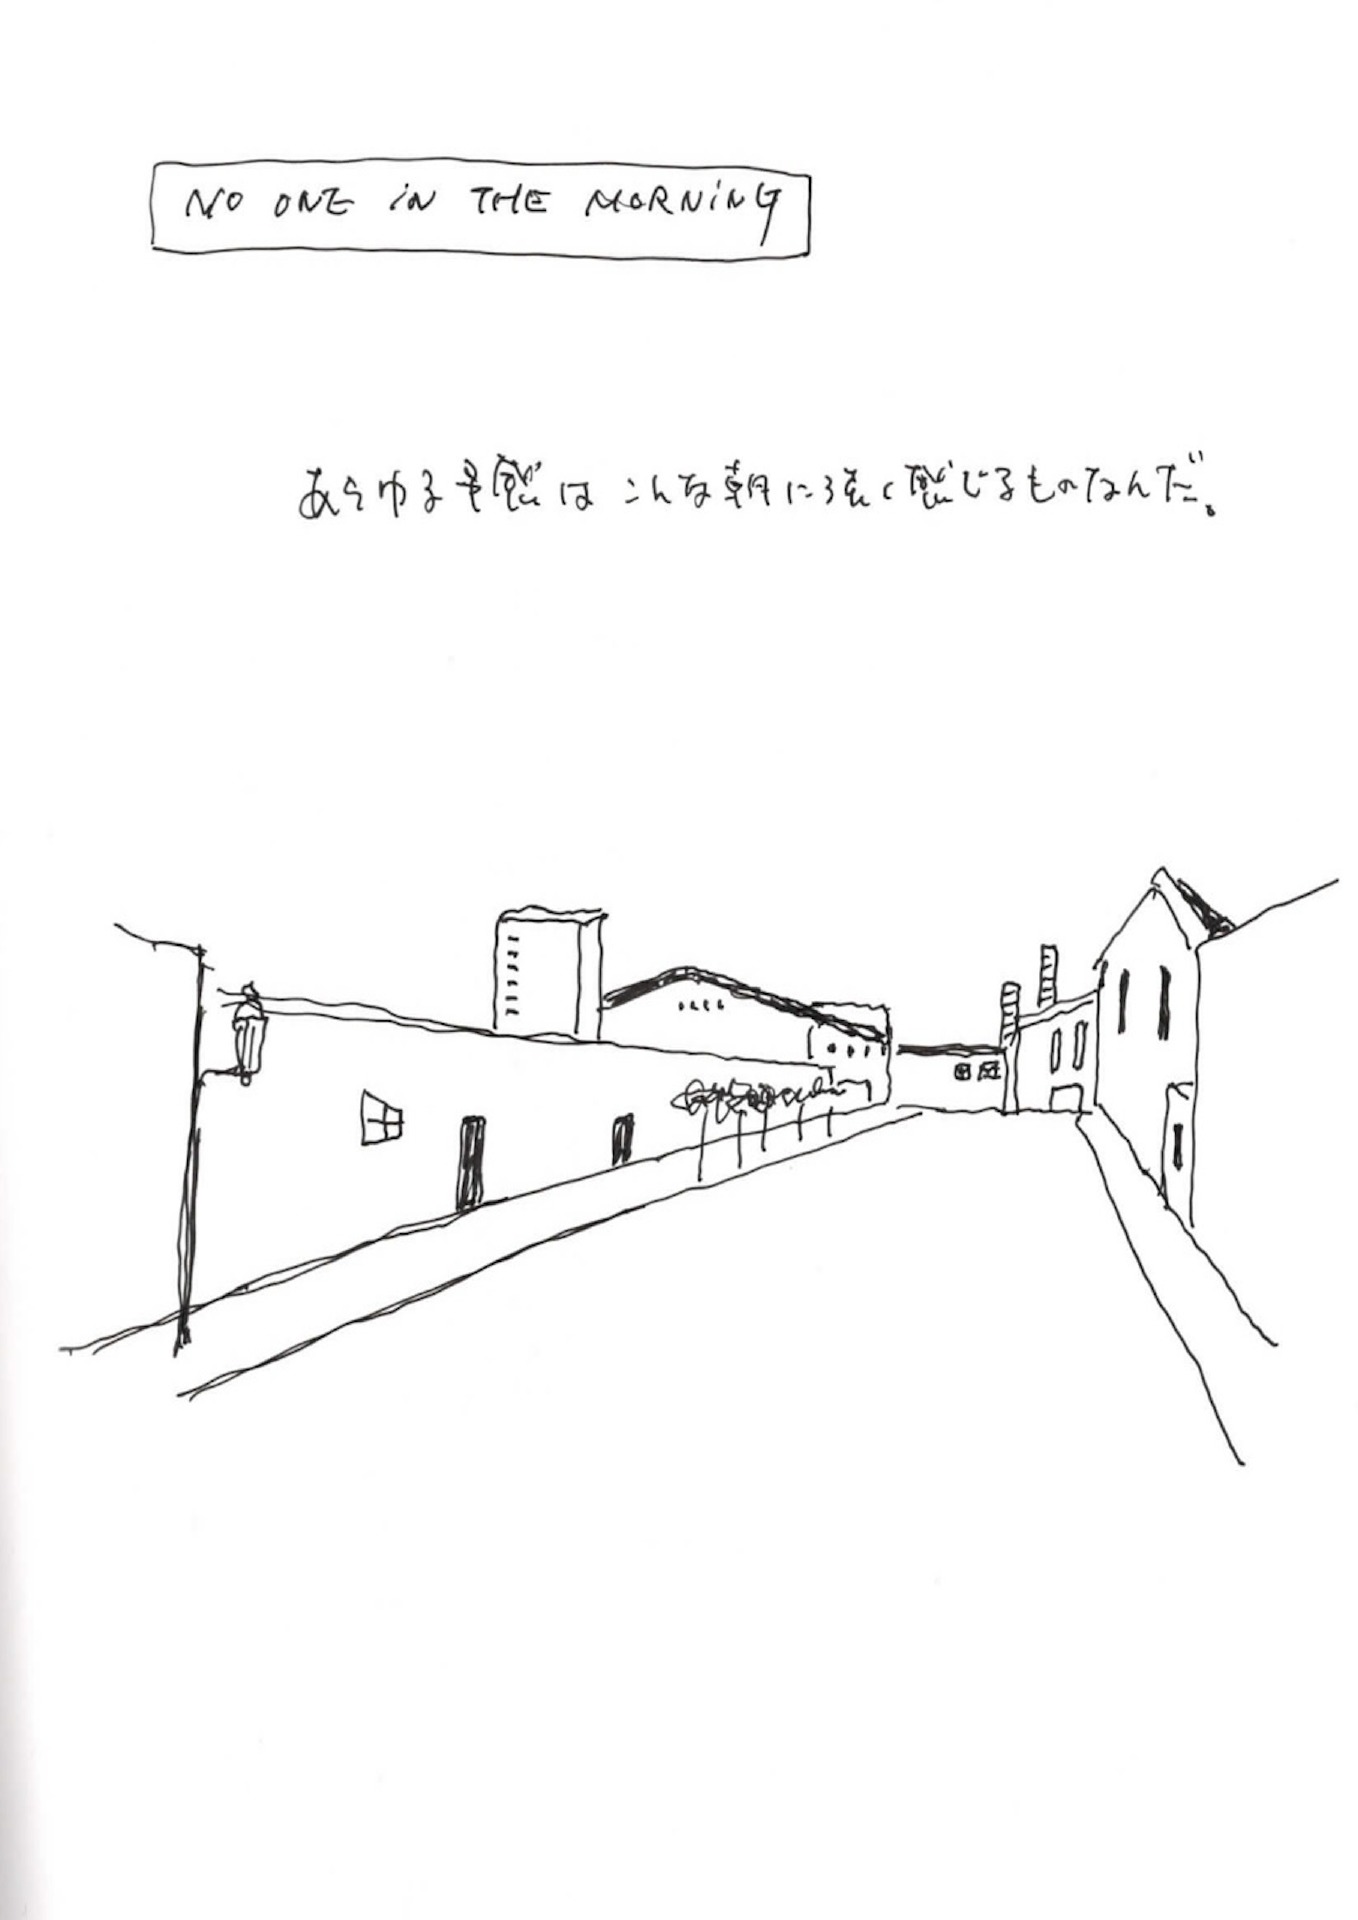 NO ONE iN THE MORNiNG
あらゆる は こんな朝に強く感じるものなんだ。